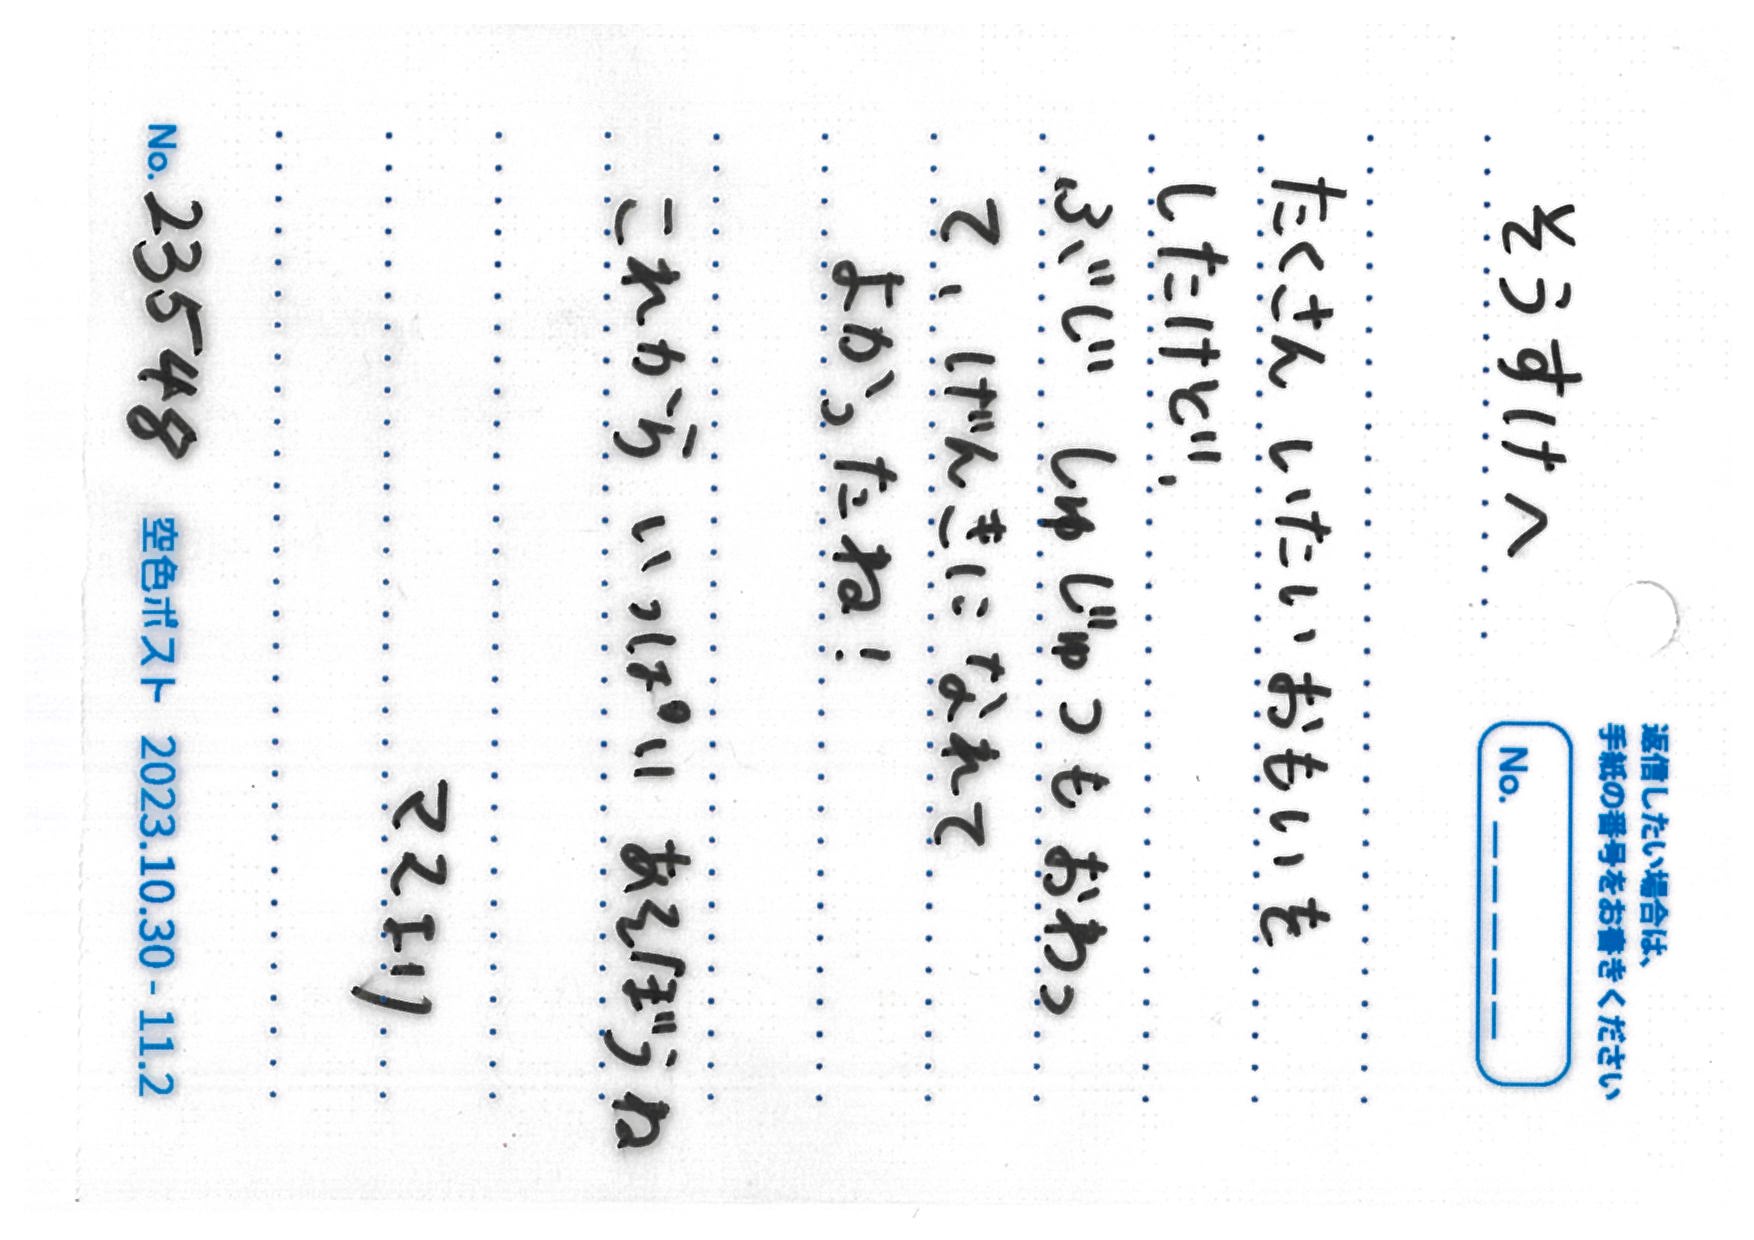 返信したい場合は、
手紙の番号をお書きください
No. _ _ _ _ _
そうすけへ
たくさん いたい おもいを
したけど、
ぶじ しゅじゅつも おわっ
て、げんきに なれて
よかったね！
これから いっぱい あそぼうね
ママより
No. 23548 空色ポスト 2023.10.30 - 11.2